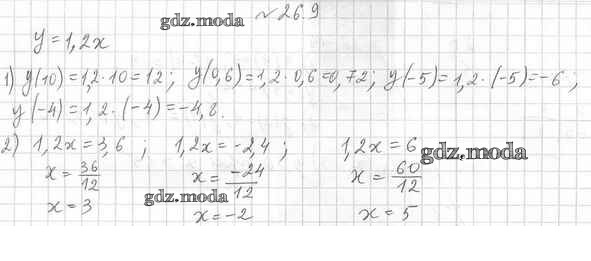 № 269
gdz.moda
y = 1,2x
1) y(10) = 1,2 · 10 = 12; y(0,6) = 1,2 · 0,6 = 0,72; y(-5) = 1,2 · (-5) = -6;
y(-4) = 1,2 · (-4) = -4,8.
2) 1,2x = 3,6 ; 1,2x = -2,4 ; 1,2x = 6
gdz.moda
x = 36/12 x = -24/12 x = 60/12
gdz.moda
x = 3 x = -2 x = 5